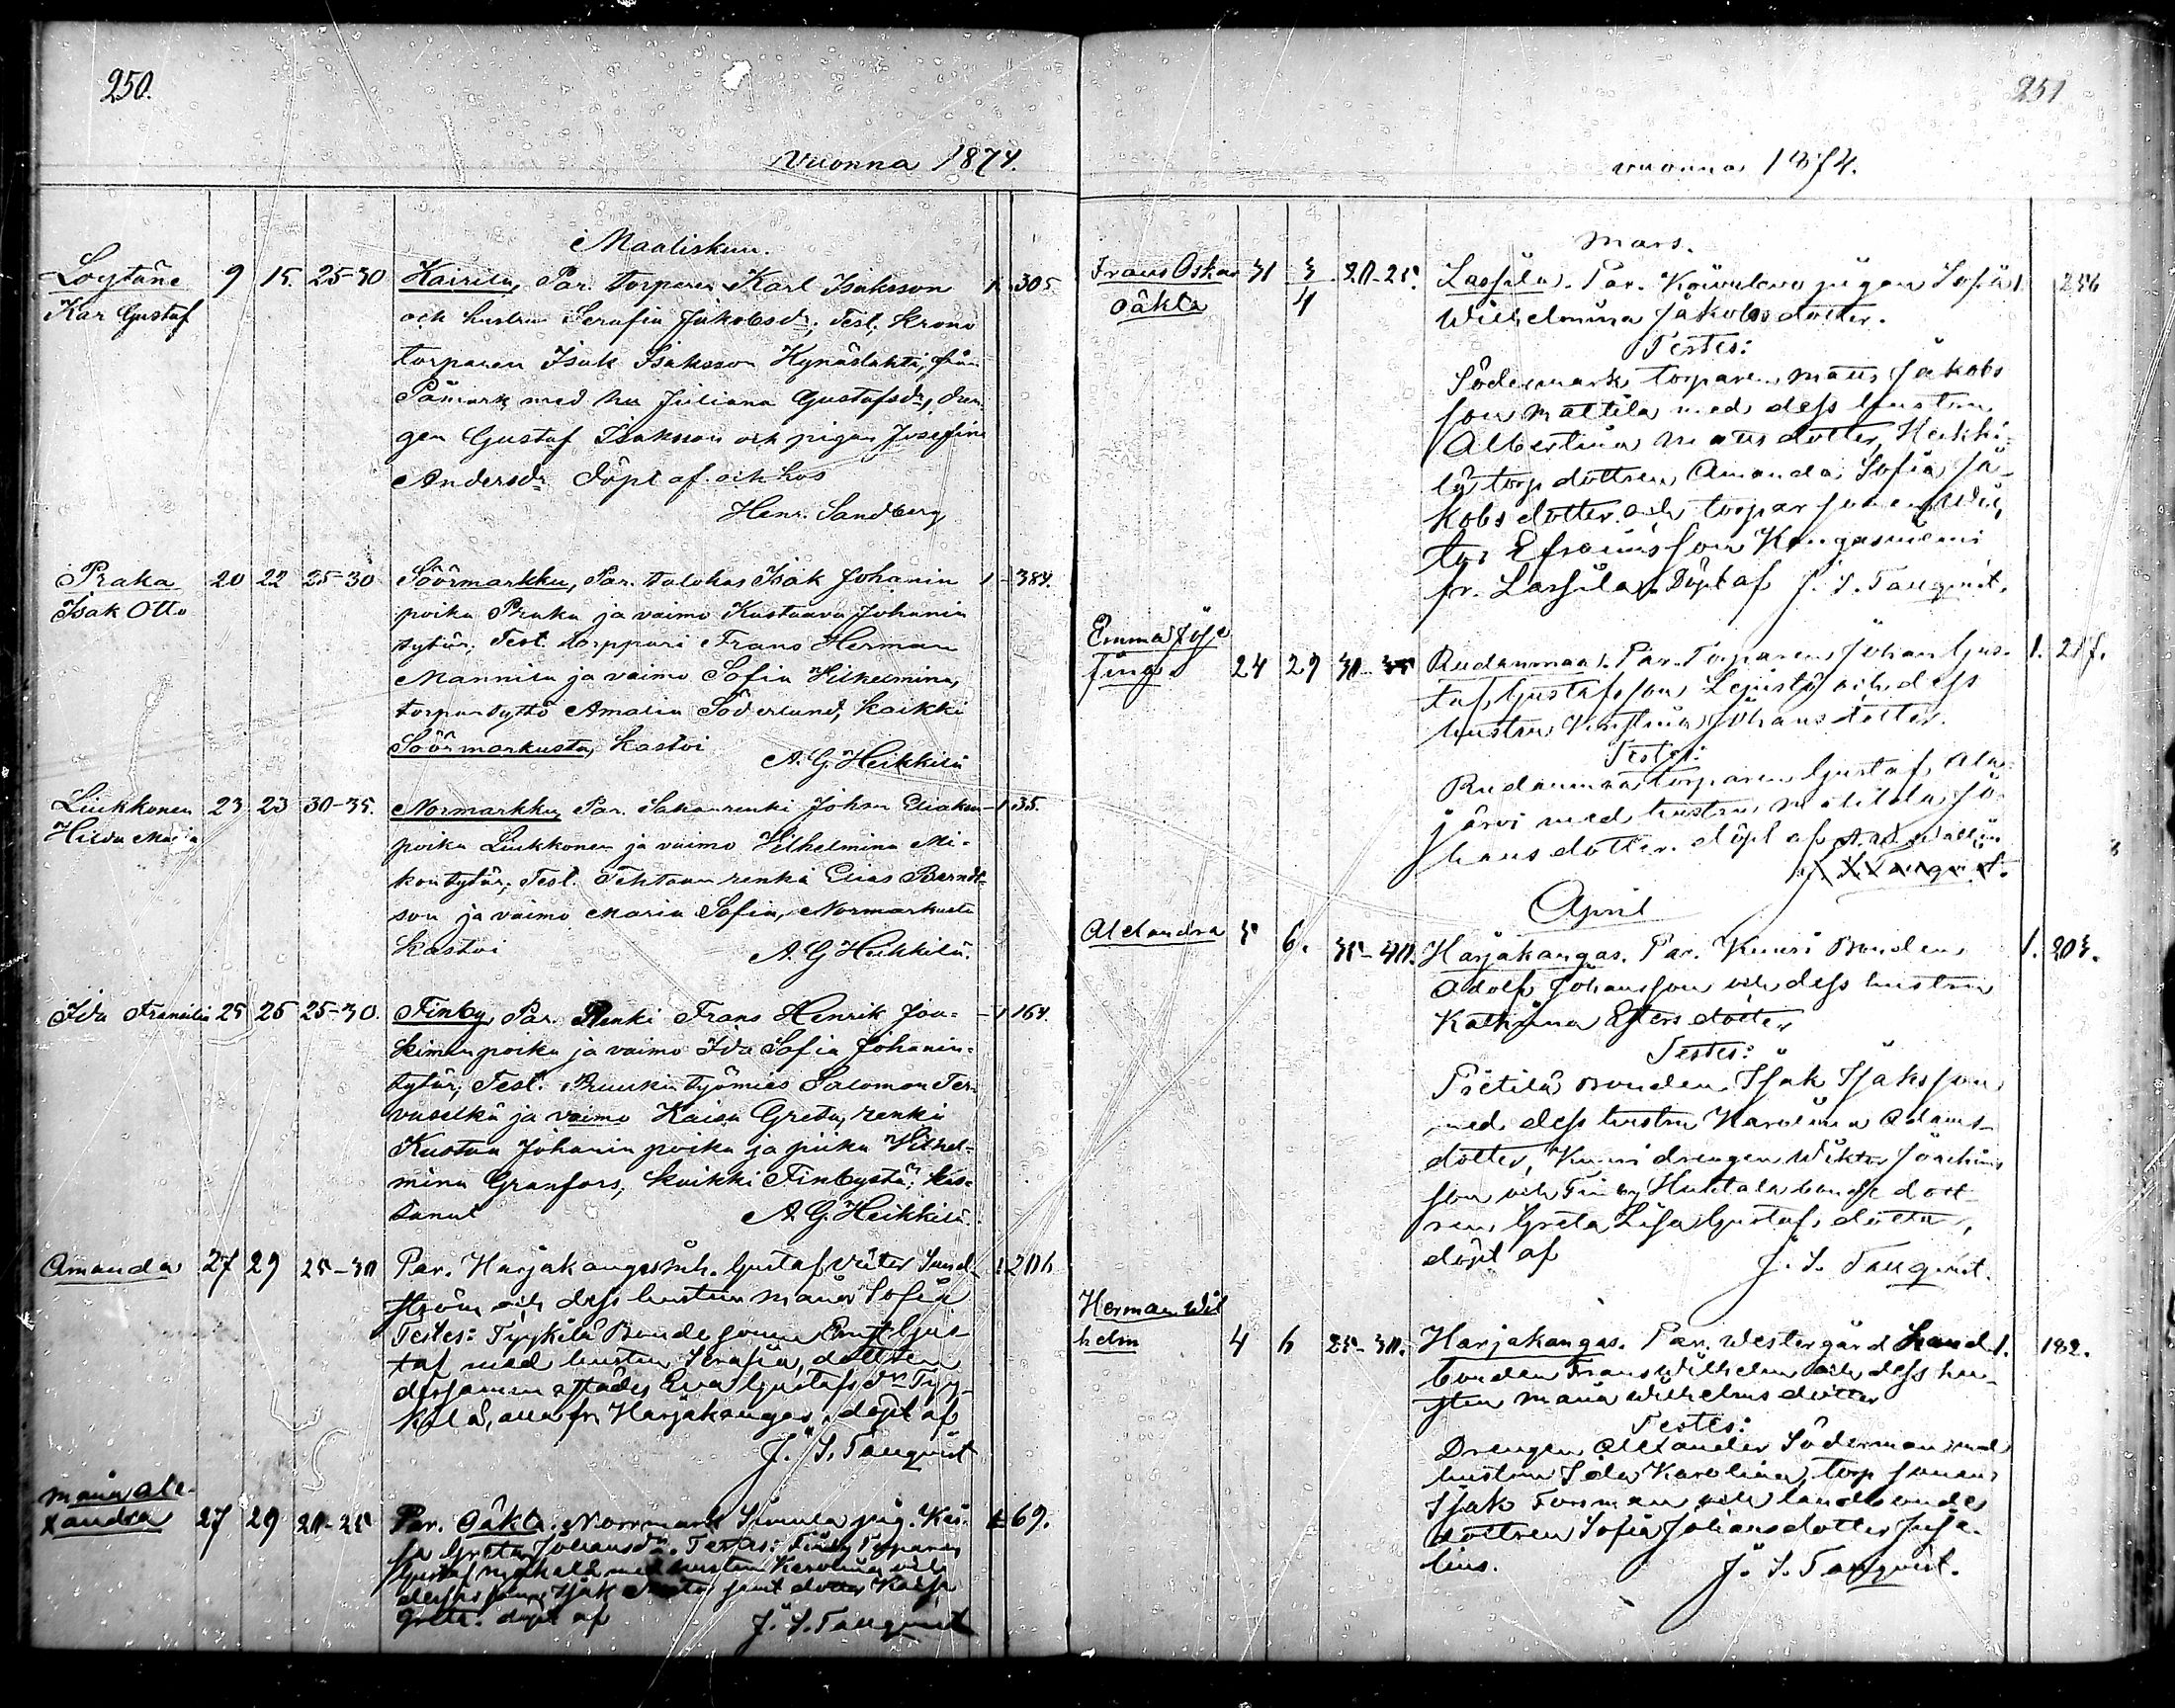 250.
Vuonna 1874.
Maaliskuu.
Loytäne 9 15 25-30 Kairila, Par. torparen Karl Isaksson 1. 305
Kar Gustaf och hustru Serafia Jakobsdr; Test. krono
torparen Isak Isaksson Kynäslahti, från
Påmark med hu Juliana Gustafsdr, dren
gen Gustaf Isaksson och pigan Josefina
Andersdr Döpt af och hos
Henr. Sandberg
Praka 20 22 25-30 Söörmarkku, Par. talokas Isak Johanin 1 384.
Isak Otto poika Praka ja vaimo Kustaava Johanin
tytär; Test. torppari Frans Herman
Mannila ja vaimo Sofia Vilhelmina,
torparitytö Amalia Söderlund, kaikki
Söörmarkusta, kastoi
A. G. Heikkilä
Liukkonen 23 23 30-35. Normarkku, Par. Sahanrenki Johan Eliaksen 1 35.
Hilda Maria poika Liukkonen ja vaimo Vilhelmina Mi-
kontytär; Test. Tehtaan renki Elias Berndt-
son ja vaimo Maria Sofia, Normarkusta
kastoi A. G Heikkilä.
Ida Fransilia 25 26 25-30. Finby, Par. Renki Frans Henrik Joa- 1 164.
kimin poika ja vaimo Ida Sofia Johanin-
tytär; Test. Ruukin työmies Salomon Ter-
vaselkä ja vaimo Kaisa Greta, renki
Kustaa Johanin poika ja piika Vilhel-
mina Granfors, kaikki Finbystä; kas-
tanut A. G. Heikkilä.
Amanda 27 29 25-30 Par. Harjakangas inh. Gustaf Sund- 1 206
ström och dess hustru Maria Sofia
Testes: Tyykilä Bondesonen Ernst Gus-
taf med hustru Serafia, dottren
dersammastädes Eva Gustafsdr Tyy-
kilä, alla fr. Harjakangas, döpt af
J. S. Tauqvist
Maria Ale-
xandra 27 29 20-25 Par. Oäkta. Norrmark Simula pig. Kai- 1 69.
sa Greta Johansdr. Testes: Finby Torparen
Gustaf med hustru Karolina och
Isak samt dotter Kaisa
Greta. döpt af J. S. Tauqvist
251
vuonna 1874.
Mars.
Frans Oskar 31 3/4 20-25. Lassila. Par. pigan Sofia 1. 256
oäkta Wilhelmina Jakobsdotter.
Testes:
Södermark torparen Matts Jakobs
son Mattila med dess hustru
Albertina Mattsdotter, Heikki-
lä torp dottren Amanda Sofia Ja-
kobsdotter och torpar sonen Wik-
tor Efraimsson Kangasniemi
fr. Lassila. Döpt af J. S. Tauqvist.
Emma Jose
fina 24 29 30-35 Rudanmaa. Par. Torparen Johan Gus- 1. 217.
taf Gustafsson Lepistö och dess
hustru Johansdotter.
Testes:
Rudanmaa torparen Gustaf Ala-
järvi med hustru Matilda Jo-
hansdotter. döpt af
J. S. Tauqvist.
April
Alexandra 5 6. 35-40. Harjakangas. Par. Knuus Bonden 1. 203.
Adolf Johansson och dess hustru
Katharina Estersdotter
Testes:
Pietilä Bonden Isak Isaksson
med dess hustru Karolina Adams-
dotter, Knuus drengen Wiktor Joachims
son och Finby Huhtala bondedott
ren Greta Lisa Gustafsdotter,
döpt af J. S. Tauqvist.
Herman Wil
helm 4 6 25-30. Harjakangas. Par. Westergård Land 1. 182.
bonden Frans Wilhelm och dess hu-
stru Maria Wilhelmsdotter
Testes:
Drengen Alexander Söderman med
hustru Ida Karolina, torp sonen
Isak Forsman och landbonde
dottren Sofia Johansdotter
J. S. Tauqvist.